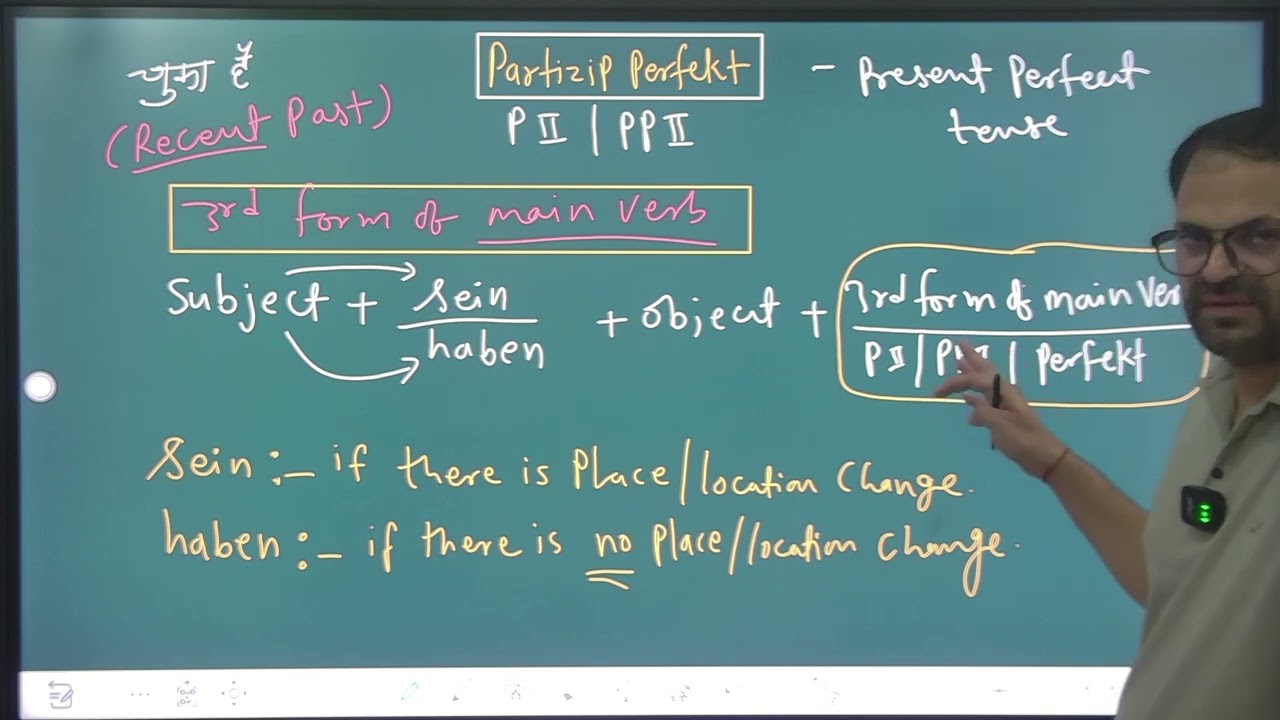 चुका है
Partizip Perfekt - Present Perfect tense
(Recent Past)
P II | PP II
3rd form of main verb
Subject + sein / haben + object + 3rd form of main Ver
P II | PP II | Perfekt
sein :- if there is Place/location Change.
haben :- if there is no Place/location Change.